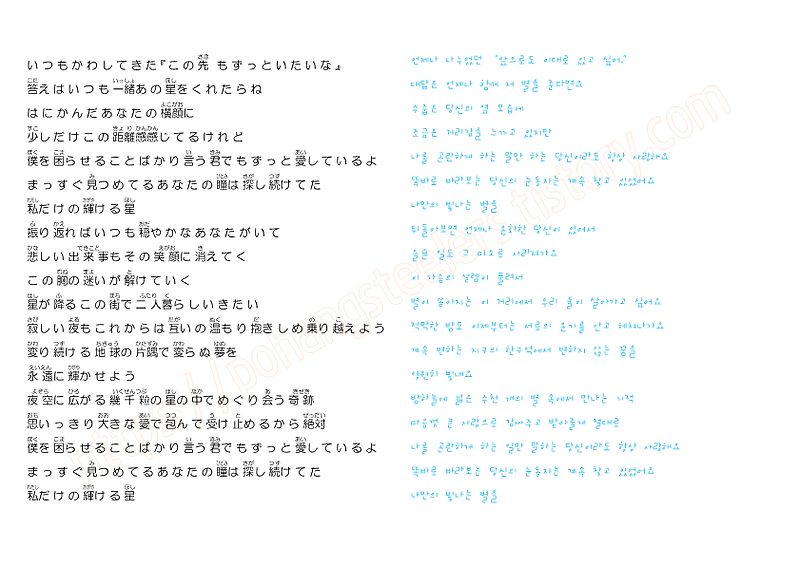 いつもかわしてきた『この先 もずっといたいな』
答えはいつも一緒あの星をくれたらね
はにかんだあなたの横顔に
少しだけこの距離感感じてるけれど
僕を困らせることばかり言う君でもずっと愛しているよ
まっすぐ見つめてるあなたの瞳は探し続けてた
私だけの輝ける星
振り返ればいつも穏やかなあなたがいて
悲しい出来事もその笑顔に消えてく
この胸の迷いが解けていく
星が降るこの街で二人暮らしいきたい
寂しい夜もこれからは互いの温もり抱きしめ乗り越えよう
変り続ける地球の片隅で変らぬ夢を
永遠に輝かせよう
夜空に広がる幾千粒の星の中でめぐり会う奇跡
思いっきり大きな愛で包んで受け止めるから絶対
僕を困らせることばかり言う君でもずっと愛しているよ
まっすぐ見つめてるあなたの瞳は探し続けてた
私だけの輝ける星
언제나 나누었던 "앞으로도 이대로 있고 싶어."
대답은 언제나 함께 저 별을 준다면요
수줍은 당신의 옆 모습에
조금은 거리감을 느끼고 있지만
나를 곤란하게 하는 말만 하는 당신이라도 항상 사랑해요
똑바로 바라보는 당신의 눈동자는 계속 찾고 있었어요
나만의 빛나는 별을
뒤돌아보면 언제나 온화한 당신이 있어서
슬픈 일도 그 미소로 사라져가요
이 가슴의 설렘이 풀려서
별이 쏟아지는 이 거리에서 우리 둘이 살아가고 싶어요
적막한 밤도 이제부터는 서로의 온기를 안고 헤쳐나가요
계속 변하는 지구의 한구석에서 변하지 않는 꿈을
영원히 빛내요
밤하늘에 넓은 수천 개의 별 속에서 만나는 기적
마음껏 큰 사랑으로 감싸주고 받아줄게 절대로
나를 곤란하게 하는 일만 말하는 당신이라도 항상 사랑해요
똑바로 바라보는 당신의 눈동자는 계속 찾고 있었어요
나만의 빛나는 별을